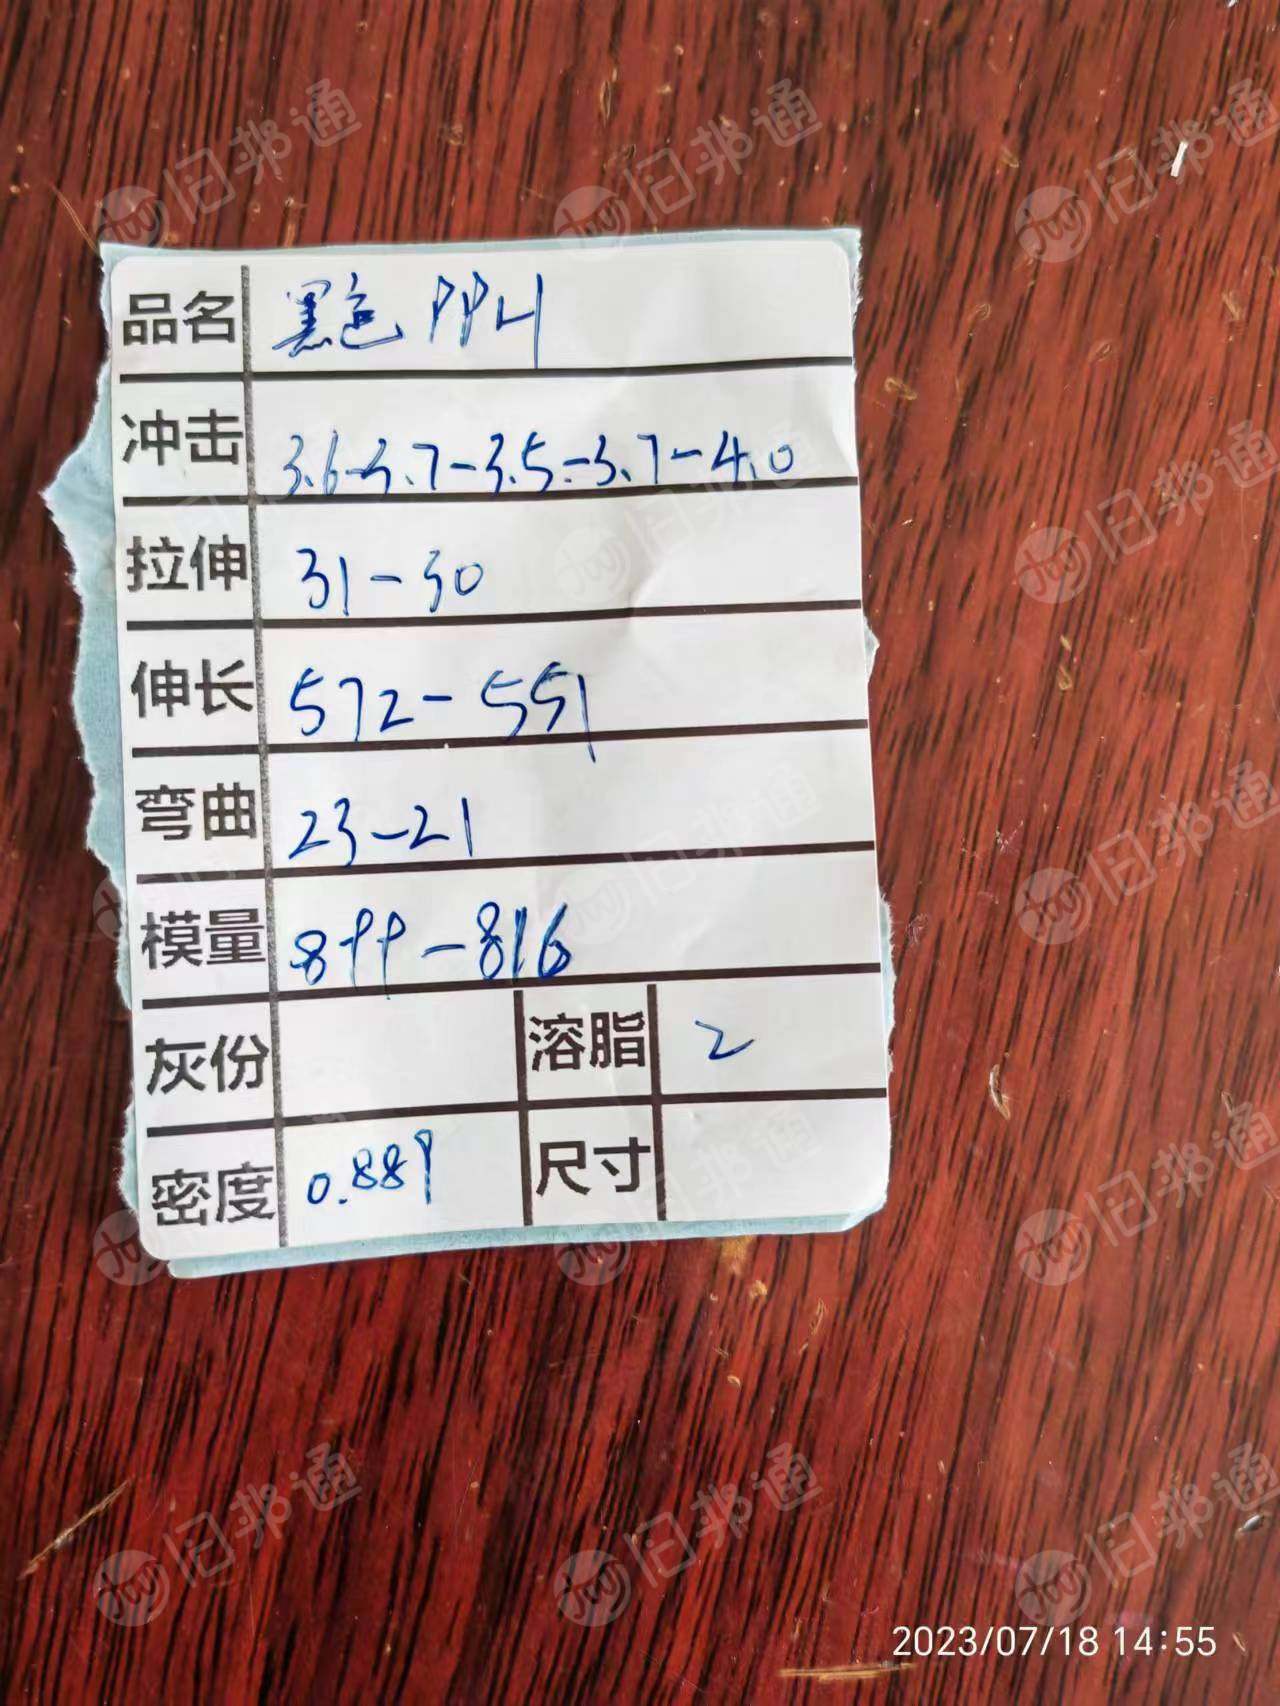 品名 黑色 PPH
冲击 3.6-3.7-3.5-3.7-4.0
拉伸 31-30
伸长 572-551
弯曲 23-21
模量 899-816
灰份 溶脂 2
密度 0.889 尺寸
旧邦通
2023/07/18 14:55